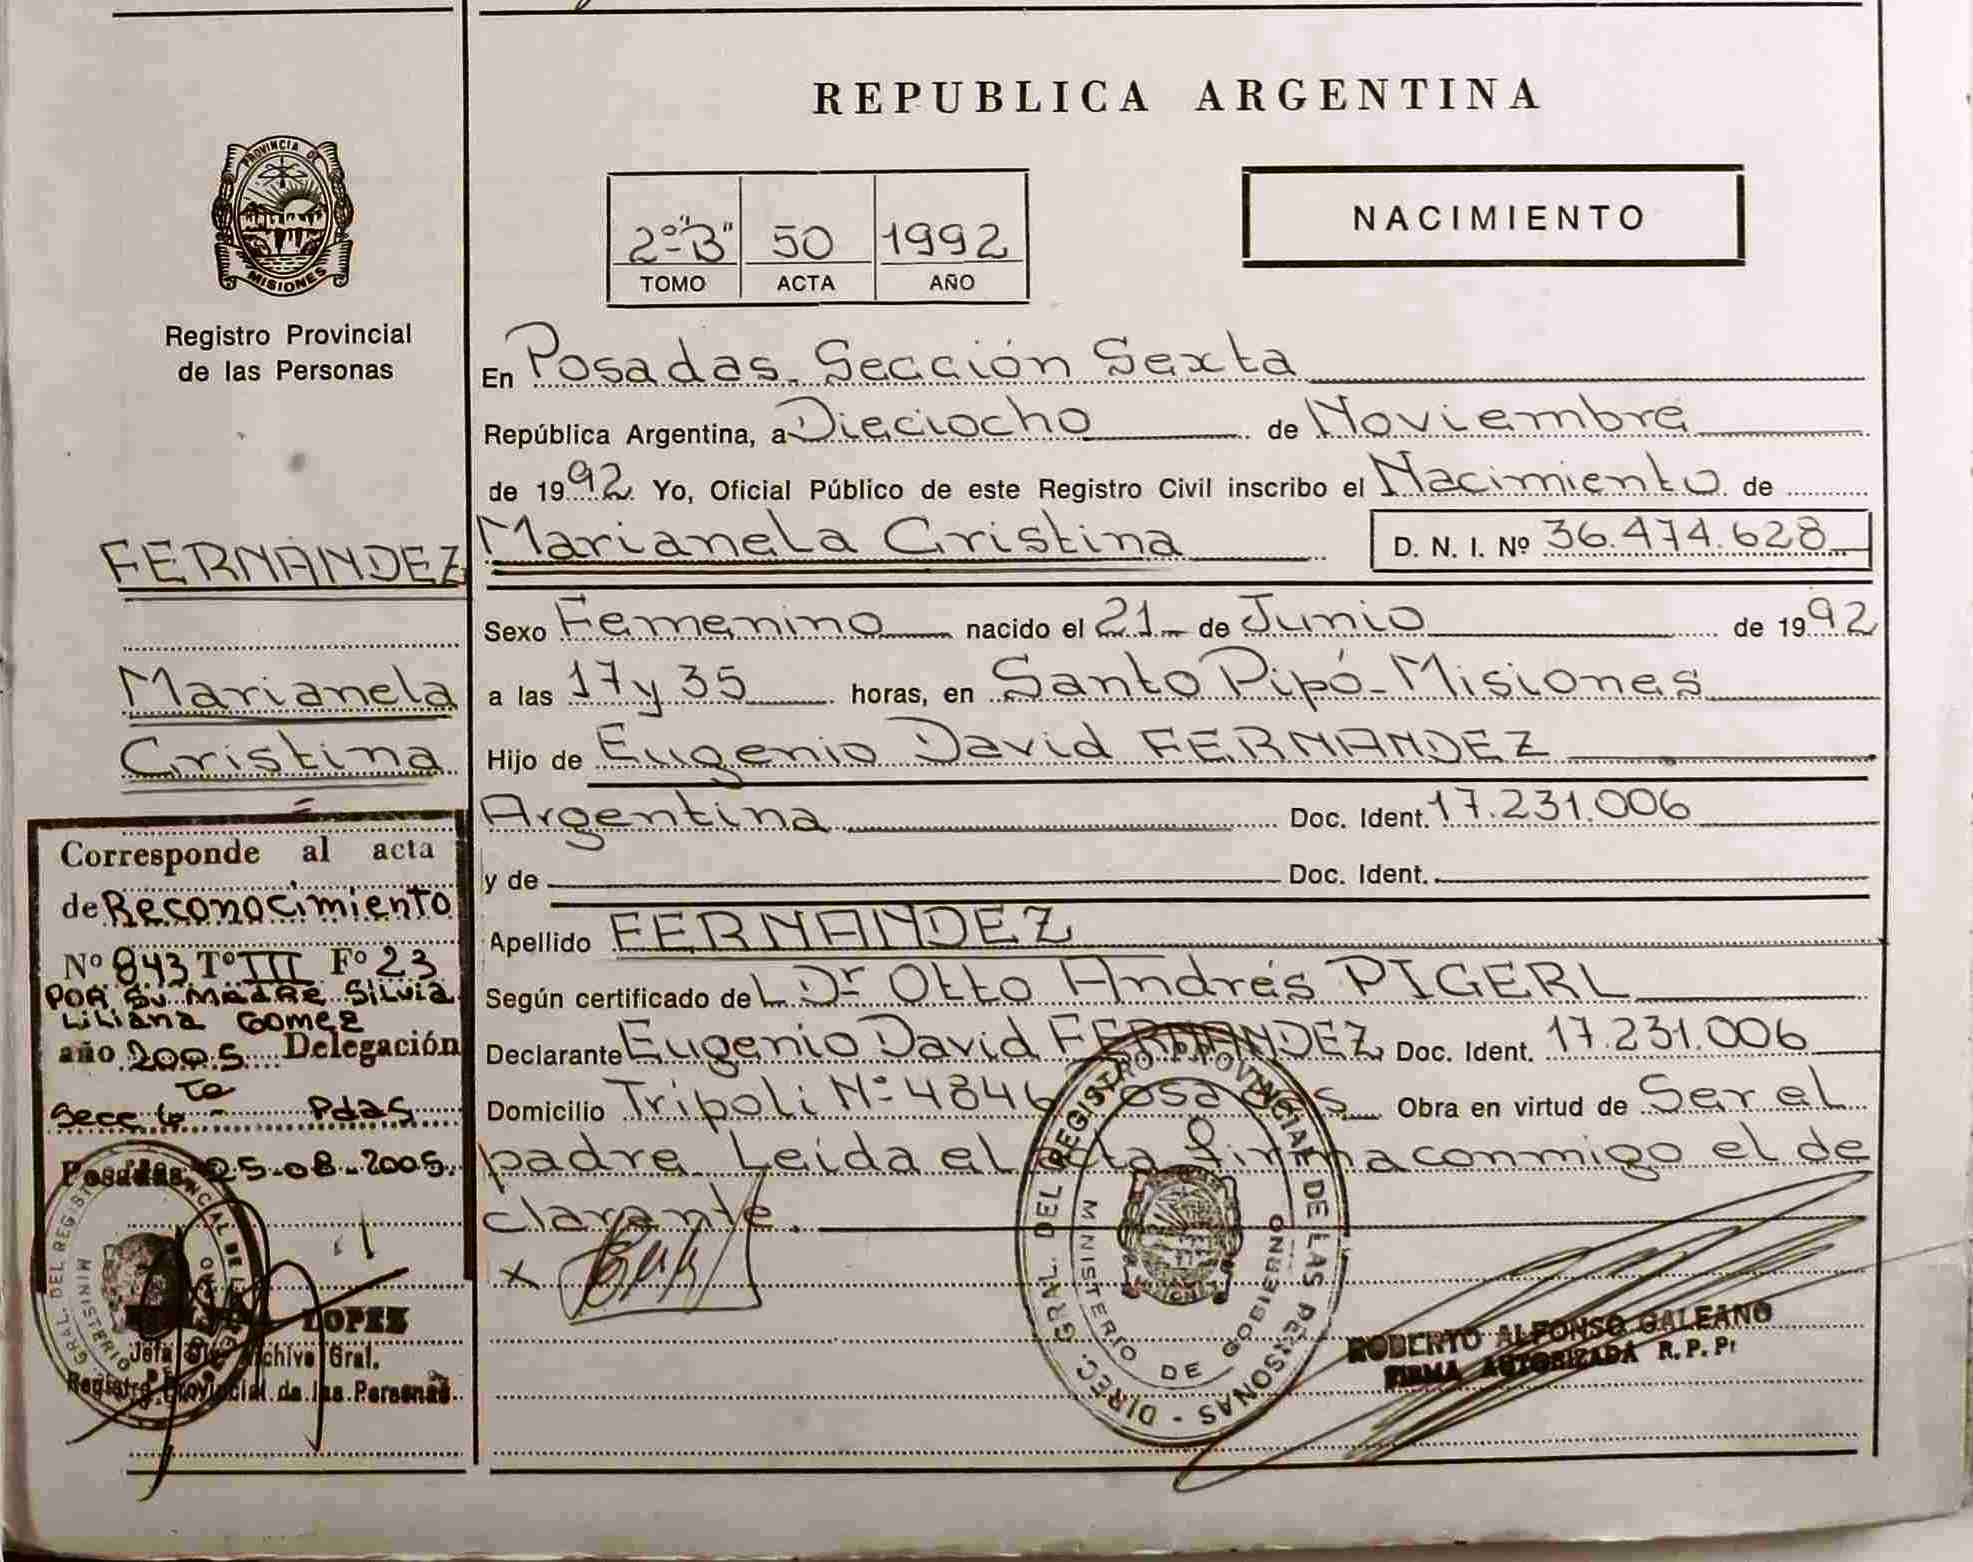 REPUBLICA ARGENTINA
PROVINCIA DE
MISIONES
Registro Provincial
de las Personas
2º "B" 50 1992
TOMO ACTA AÑO
NACIMIENTO
En Posadas. Sección Sexta
República Argentina, a Dieciocho de Noviembre
de 1992. Yo, Oficial Público de este Registro Civil inscribo el Nacimiento de
Marianela Cristina D. N. I. Nº 36.474.628
Sexo Femenino nacido el 21 de Junio de 1992
a las 17 y 35 horas, en Santo Pipó - Misiones
Hijo de Eugenio David FERNANDEZ
Argentina Doc. Ident. 17.231.006
y de Doc. Ident.
Apellido FERNANDEZ
Según certificado del Dr Otto Andrés PIGERL
Declarante Eugenio David FERNANDEZ Doc. Ident. 17.231.006
Domicilio Tripoli Nº 4846 Posadas Obra en virtud de Ser el
padre. Leída el acta firma conmigo el de
clarante.
x
DIREC. GRAL. DEL REGISTRO PROVINCIAL DE LAS PERSONAS -
MINISTERIO DE GOBIERNO
MISIONES
ROBERTO ALFONSO GALEANO
FIRMA AUTORIZADA R. P. P.
FERNANDEZ
Marianela
Cristina
Corresponde al acta
de Reconocimiento
Nº 843 Tº III Fº 23
POR SU MADRE SILVIA
LILIANA GOMEZ
año 2005 Delegación
Secc 6ta - Pdas
Posadas, 25-08-2005.
LOPEZ
Jefa Archivo Gral.
Registro Provincial de las Personas